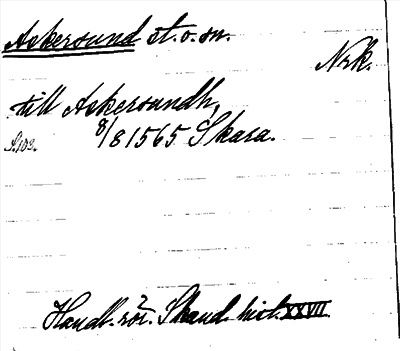 Askersund st. o. sn.
Nrk.
till Askersundh,
S. 102. 8/8 1565 Skara.
Handl. rör. Skand. hist. XXVII